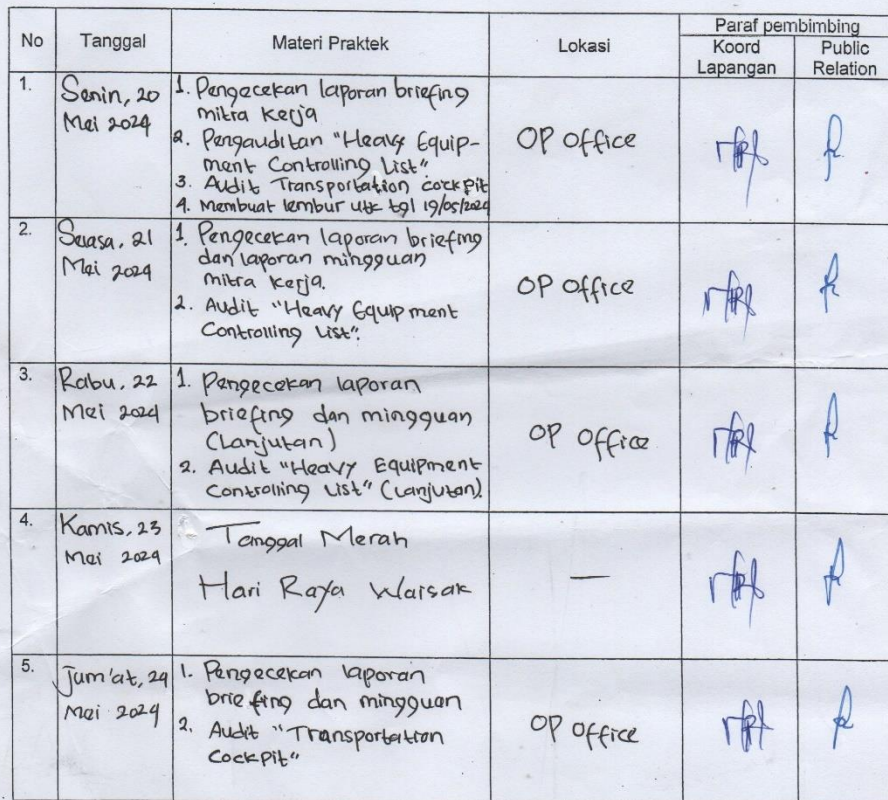 No
Tanggal
Materi Praktek
Lokasi
Paraf pembimbing
Koord
Lapangan
Public
Relation
1.
Senin, 20
Mei 2024
1. Pengecekan laporan briefing
mitra kerja
2. Pengauditan "Heavy Equip-
ment Controlling List"
3. Audit Transportation cockpit
4. Membuat lembur utk tgl 19/05/2024
OP Office
2.
Selasa, 21
Mei 2024
1. Pengecekan laporan briefing
dan laporan mingguan
mitra kerja.
2. Audit "Heavy Equipment
Controlling List".
OP Office
3.
Rabu, 22
Mei 2024
1. Pengecekan laporan
briefing dan mingguan
(Lanjutan)
2. Audit "Heavy Equipment
Controlling List" (Lanjutan).
OP Office
4.
Kamis, 23
Mei 2024
Tanggal Merah
Hari Raya Waisak
—
5.
Jum'at, 24
Mei 2024
1. Pengecekan laporan
briefing dan mingguan
2. Audit "Transportation
Cockpit"
OP Office